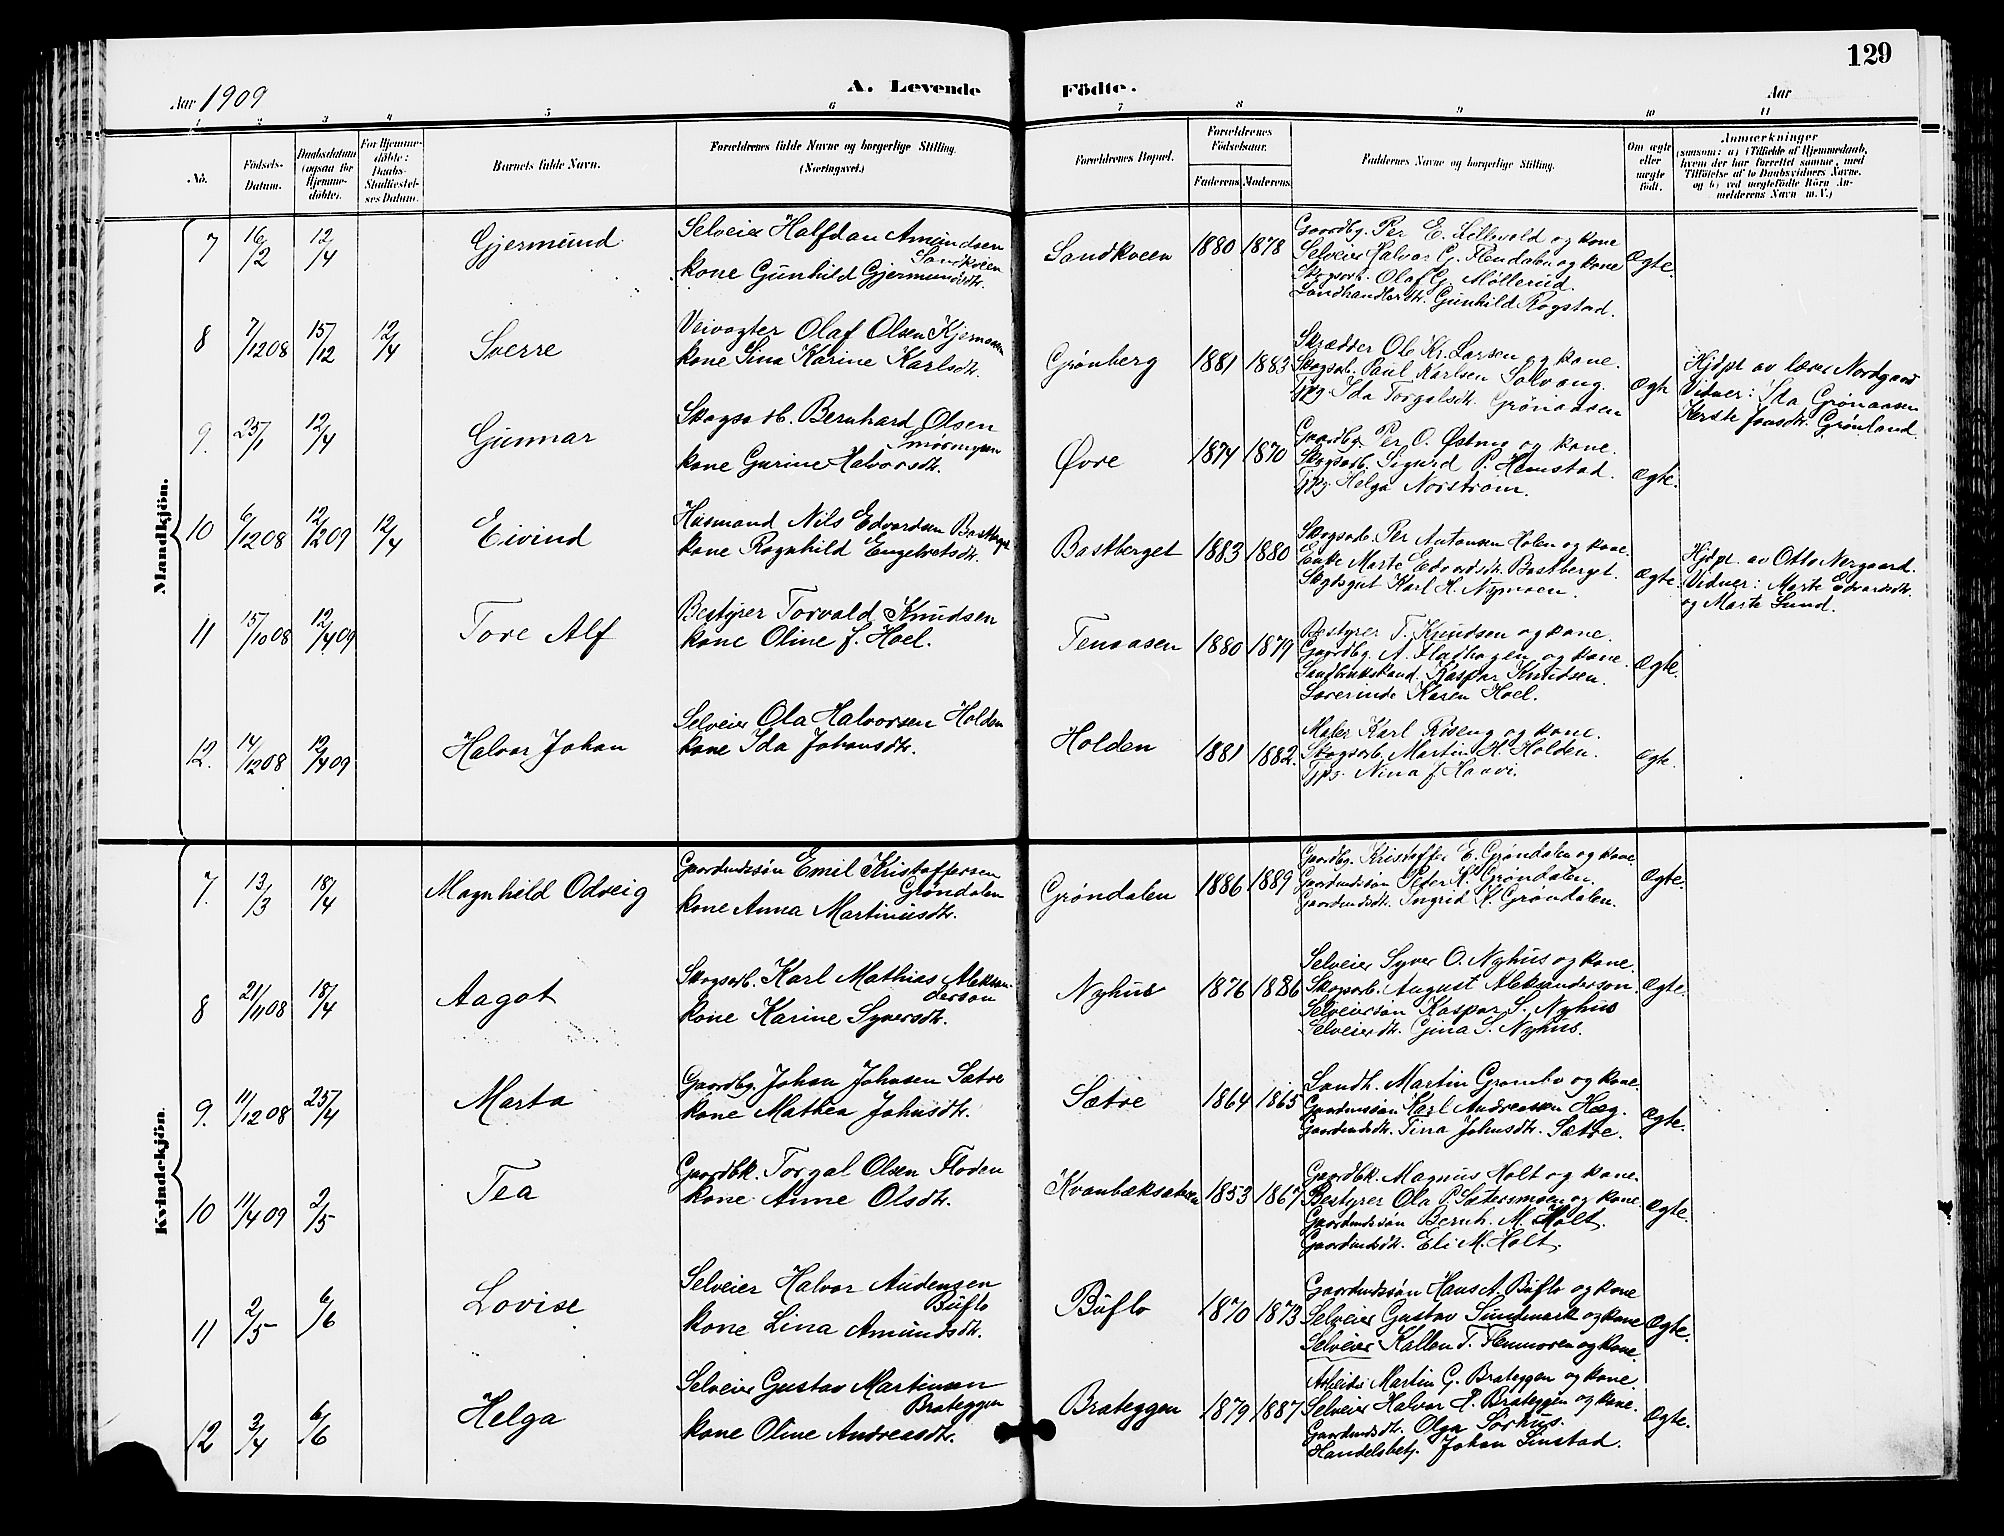 129
Aar 1909
A. Levende Födte.
Aar
1 2 3 4 5 6 7 8 9 10 11
No.
Födsels-Datum.
Daabsdatum (ogsaa for Hjemme-döbte).
For Hjemme-döbte: Daabs-Stadfæstel-ses Datum.
Barnets fulde Navn.
Forældrenes fulde Navne og borgerlige Stilling. (Næringsvei.)
Forældrenes Bopæl.
Forældrenes Födselsaar.
Faderens Moderens
Faddernes Navne og borgerlige Stilling.
Om ægte eller uægte født.
Anmærkninger
(saasom: a) i Tilfælde af Hjemmedaab, hvem der har forrettet samme, med Tilföielse af to Daabsvidners Navne. og b) ved uegtefödte Börn An-melderens Navn m.V.)
Mandkjön.
7 16/2 12/4 Gjermund
Selveier Halfdan Amundsen
Sandkveen
kone Gunhild Gjermundsdtr.
Sandkveen 1880 1878
Gaardbg. Per E. Lillevold og kone
Selveier Halvor G. Flendalen og kone
Skogsarb. Olaf G. Møllerud.
Landhandlerdtr. Gunhild Rogstad.
Ægte.
8 7/12 08 15/12 12/4 Sverre
Veivogter Olaf Olsen Kjernaasen
kone Sina Karine Karlsdtr.
Grønberg 1881 1883
Skrædder Ole Kr. Larsen og kone.
Skogsarb. Paul Karlsen Solvang.
Tjpg. Ida Torgalsdtr. Grønaasen
Ægte
Hjdpt av lærer Nordgaard
Vidner: Ida Grønaasen
Kerste Jonsdtr. Grønland.
9. 25/1 12/4 Gunnar
Skogsarb. Bernhard Olsen
Smørmyren
kone Gurine Halvorsdtr.
Øvre 1874 1870
Gaardbg. Per O. Østmo og kone.
Skogsarb. Sigurd P. Hemstad.
Tjpg. Helga Norstrøm.
Ægte.
10 6/12 08 12/12 09 12/4 Eivind
Husmand Nils Edvardsen Bastberget
kone Ragnhild Engebretsdtr.
Bastberget 1883 1880
Skogsarb. Per Antonsen Holen og kone.
Enke Marte Edvardsdtr. Bastberget.
Skydsgut Karl H. Nymoen.
Ægte.
Hjdpt. av Otto Norgaard.
Vidner: Marte Edvardsdtr.
og Marte Lund.
11 15/10 08 12/4 09 Tore Alf
Bestyrer Torvald Knudsen
kone Oline J. Hoel.
Tenaasen 1880 1879
Bestyrer T. Knudsen og kone.
Gaardbg. A. Fladhagen og kone.
Landbrukskand. Kaspar Knudsen.
Lærerinde Karen Hoel.
Ægte.
12. 14/12 08 12/4 09 Halvor Johan
Selveier Ola Halvorsen Holden
kone Ida Johansdtr.
Holden 1881 1882.
Maler Karl Røseng og kone.
Skogsarb. Martin H. Holden.
Tjpg. Nina J. Haavi.
Ægte.
Kvindekjön.
7. 13/3 18/4 Magnhild Odveig
Gaardmdssøn Emil Kristoffersen
Grøndalen
kone Anna Martinusdtr.
Grøndalen 1886 1889
Gaardbg. Kristoffer E. Grøndalen og kone
Gaardmdssøn Peter K. Grøndalen.
Gaardmdsdtr. Ingrid K. Grøndalen.
Ægte.
8 21/11 08 18/4 Aagot
Skogsarb. Karl Mathias Aleksan-
derson
kone Karine Syversdtr.
Nyhus 1876 1886
Selveier Syver O. Nyhus og kone.
Skogsarb. August Aleksanderson.
Selveiersøn Kaspar S. Nyhus
Selveierdtr. Gina S. Nyhus.
Ægte.
9. 11/12 08 25/4 Marta
Gaardbg. Johan Johnsen Sætre
kone Mathea Johnsdtr.
Sætre 1864 1865
Landh. Martin Grambo og kone.
Gaardmdssøn Karl Andreassen Hæg.
Gaardmdsdtr. Tina Johnsdtr. Sætre.
Ægte.
10 11/4 09 2/5 Tea
Gaardbk. Torgal Olsen Floden
kone Anne Olsdtr.
Kvanbæksæteren 1853 1867
Gaardbk. Magnus Holt og kone.
Bestyrer Ola P. Sætersmoen og kone.
Gaardmdssøn Bernh. M. Holt.
Gaardmdsdtr. Eli M. Holt.
Ægte.
11 2/5 6/6 Lovise
Selveier Halvor Audensen
Buflo
kone Lina Amundsdtr.
Buflo 1870 1873
Gaardmdssøn Hans A. Buflo og kone
Selveier Gustav Sundmark og kone
Selveier Kallen T. Hemoren og kone.
Ægte.
12 3/4 6/6 Helga
Selveier Gustav Martinsen
Brateggen
kone Oline Andreasdtr.
Brateggen 1879 1887
Arbeider Martin G. Brateggen og kone.
Selveier Halvor P. Brateggen og kone.
Gaardmdsdtr. Olga Sørhus.
Handelsbetj. Johan Linstad.
Ægte.